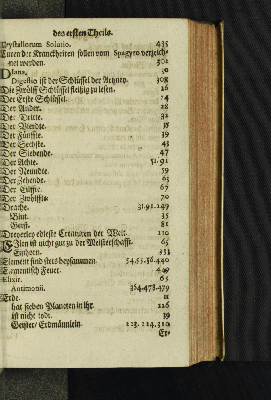 des ersten Theils.
Crystallorum Solutio. 435
Curen der Kranckheiten sollen vom Spagyro verzeich-
net werden. 302
Diana, 10
Digestio ist der Schlüssel der Artzney. 308
Die Zwölff Schlüssel fleißig zu lesen. 16
Der Erste Schlüssel. 24
Der Ander. 28
Der Dritte. 32
Der Vierdte. 35
Der Fünffte. 39
Der Sechste. 43
Der Siebende. 47
Der Achte. 51.91
Der Neundte. 59
Der Zehende. 63
Der Eilffte. 67
Der Zwölffte. 70
Drache. 31.91.249
Blut. 35
Geist. 81
Dreyerley edleste Creaturen der Welt. 110
Eisen ist nicht gut zu der Meisterschafft. 65
Einhorn. 353
Element sind stets beysammen. 54.65.56.440
Elementisch Feuer. 449
Elixir. 65
Antimonii. 364.478.479
Erde. 11
hat sieben Planeten in ihr. 226
ist nicht todt. 39
Geister/ Erdmännlein. 223.224.310
Er-